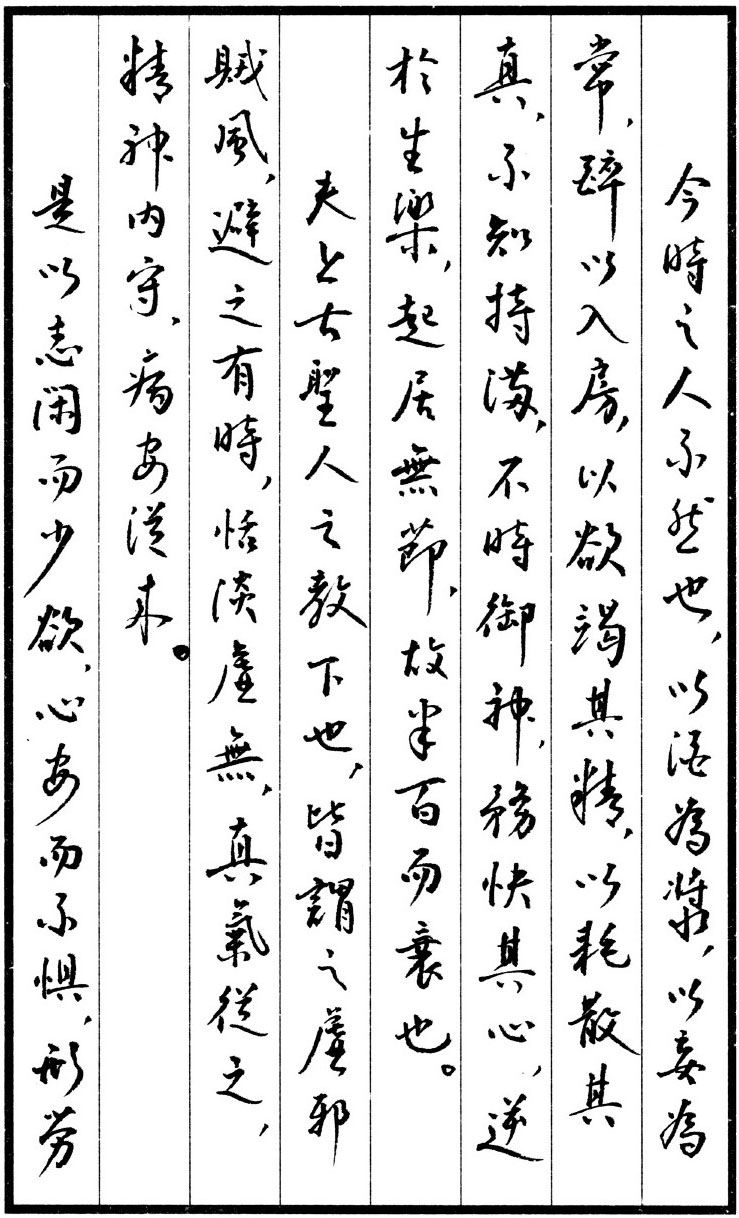 今時之人不然也，以酒為漿，以妄為
常，醉以入房，以欲竭其精，以耗散其
真，不知持滿，不時御神，務快其心，逆
於生樂，起居無節，故半百而衰也。
夫上古聖人之教下也，皆謂之虛邪
賊風，避之有時，恬淡虛無，真氣從之，
精神內守，病安從來。
是以志閑而少欲，心安而不懼，形勞